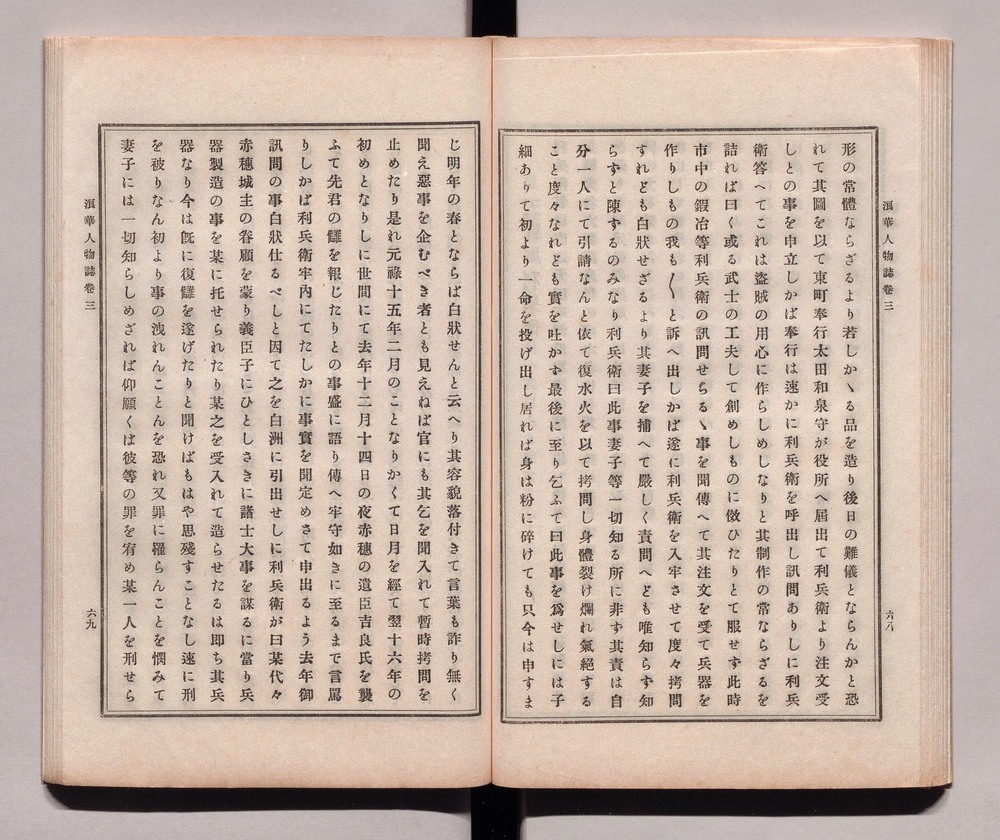 浪華人物誌卷三
六八
形の常體ならざるより若しかゝる品を造り後日の難儀とならんかと恐
れて其圖を以て東町奉行太田和泉守が役所へ屆出て利兵衛より注文受
しとの事を申立しかば奉行は速かに利兵衛を呼出し訊問ありしに利兵
衛答へてこれは盜賊の用心に作らしめしなりと其制作の常ならざるを
詰れば曰く或る武士の工夫して創めしものに倣ひたりとて服せず此時
市中の鍜冶等利兵衛の訊問せらるゝ事を聞傳へて其注文を受て兵器を
作りしもの我も〳〵と訴へ出しかば遂に利兵衛を入牢させて度々拷問
すれども白狀せざるより其妻子を捕へて嚴しく責問へども唯知らず知
らずと陳ずるのみなり利兵衛曰此事妻子等一切知る所に非ず其責は自
分一人にて引請なんと依て復水火を以て拷問し身體裂け爛れ氣絕する
こと度々なれども實を吐かず最後に至り乞ふて曰此事を爲せしには子
細ありて初より一命を投げ出し居れば身は粉に碎けても只今は申すま
じ明年の春とならば白狀せんと云へり其容貌落付きて言葉も詐り無く
聞え惡事を企むべき者とも見えねば官にも其乞を聞入れて暫時拷問を
止めたり是れ元祿十五年二月のことなりかくて日月を經て翌十六年の
初めとなりしに世間にて去年十二月十四日の夜赤穗の遺臣吉良氏を襲
ふて先君の讎を報じたりとの事盛に語り傳へ牢守如きに至るまで言罵
りしかば利兵衛牢內にてたしかに事實を聞定めさて申出るよう去年御
訊問の事白狀仕るべしと因て之を白洲に引出せしに利兵衛が曰某代々
赤穗城主の眷顧を蒙り義臣子にひとしさきに諸士大事を謀るに當り兵
器製造の事を某に托せられたり某之を受入れて造らせたるは即ち其兵
器なり今は旣に復讎を遂げたりと聞けばもはや思殘すことなし速に刑
を被りなん初より事の洩れんことを恐れ又罪に罹らんことを憫みて
妻子には一切知らしめざれば仰願くば彼等の罪を宥め某一人を刑せら
浪華人物誌卷三
六九